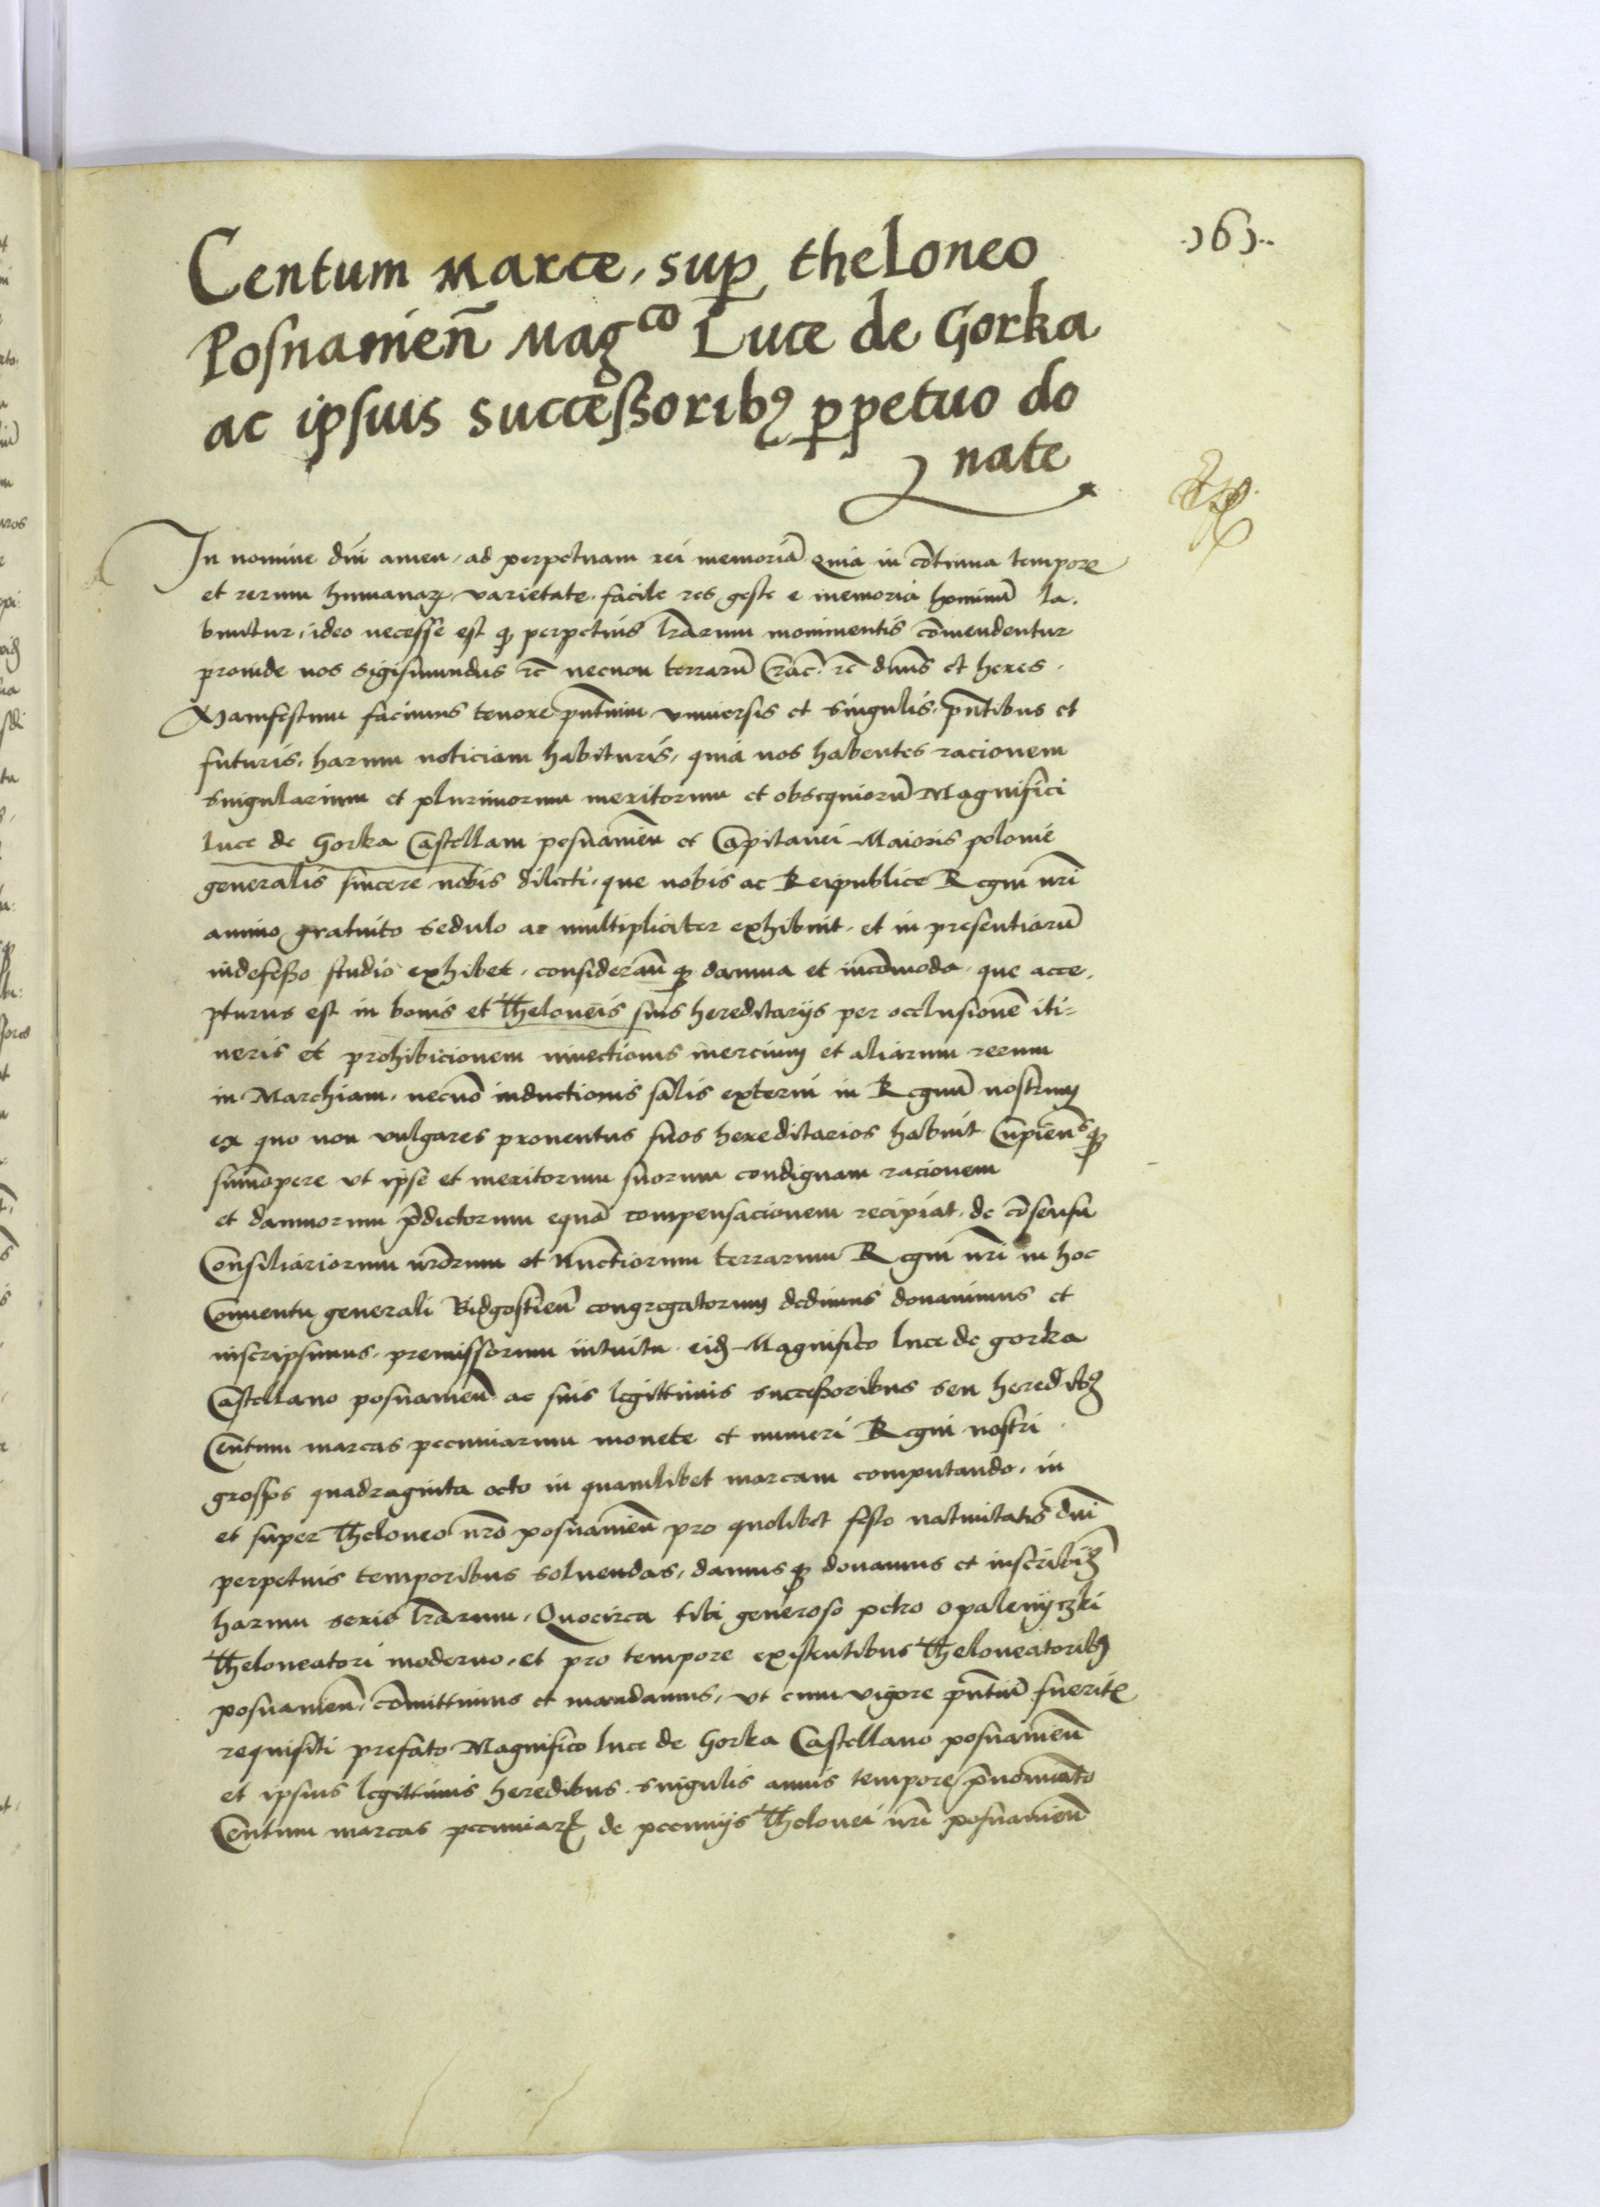 .161..
Centum Marce, sup theloneo
Posnamieñ Magco Luce de Gorka
ac ipsuis successoribꝰ ppetuo do
nate
In nomine dñi amen, ad perpetuam rei memoriã Quia in cõtinua tempore
et rerum humanaꝝ varietate facile res geste e memoria hominũ la,
buntur, ideo necesse est ꝙ perpetuis lrãrum monimentis cõmendentur
proinde nos Sigismundus rc̃ necnon terrarũ Crac̃. rc̃ dnũs et heres.
Manifestum facimus tenore pñtium vniuersis et singulis, pñtibus et
futuris, harum noticiam habituris, quia nos habentes racionem
singularium et plurimorum meritorum et obsequiorũ Magnifici
Luce de Gorka Castellani posnanieñ et Capitanei Maioris polonie
generalis sincere nobis dilecti, que nobis ac Reipublice Regni nr̃i
animo gratuito sedulo ac multipliciter exhibuit, et in presentiarũ
indefesso studio exhibet, considerañ ꝙ damna et incõmoda, que acce,
pturus est in bonis et Theloneis suis hereditarijs per occlusionẽ iti=
neris et prohibicionem inuectionis mercium et aliarum rerum
in Marchiam, necnõ inductionis salis externi in Regnũ nostrum
ex quo non vulgares prouentus suos hereditarios habuit Cupiens ꝙ
sum̃opere vt ipse et meritorum suorum condignam racionem
et damnorum p̃dictorum equã compensacionem recipiat, de cõsensu
Consiliariorum nr̃orum et Nunctiorum terrarum Regni nr̃i in hoc
Conuentu generali Bidgostieñ congregatorum dedimus donauimus et
inscripsimus, premissorum intuitu eidꝫ Magnifico Luce de gorka
Castellano posnanieñ ac suis legittimis successoribus seu heredibꝫ
Centum marcas pecuniarum monete et numeri Regni nostri.
grossos quadraginta octo in quamlibet marcam computando, in
et super Theloneo nr̃o posnanieñ pro quolibet festo natiuitatis dñi
perpetuis temporibus soluendas, damus ꝙ donamus et inscribimꝰ
harum serie lrãrum, Quocirca tibi generoso petro opalenyczki
Theloneatori moderno, et pro tempore existentibus Theloneatoribꝰ
posnanieñ, cõmittimus et mandamus, vt cum vigore pñtiũ fueritꝭ
requisiti prefato Magnifico luce de Gorka Castellano posnanieñ
et ipsius legittimis heredibus singulis annis tempore p̃nominato
Centum marcas pecuniaꝝ de pecunijs Thelonei nr̃i posnanieñ